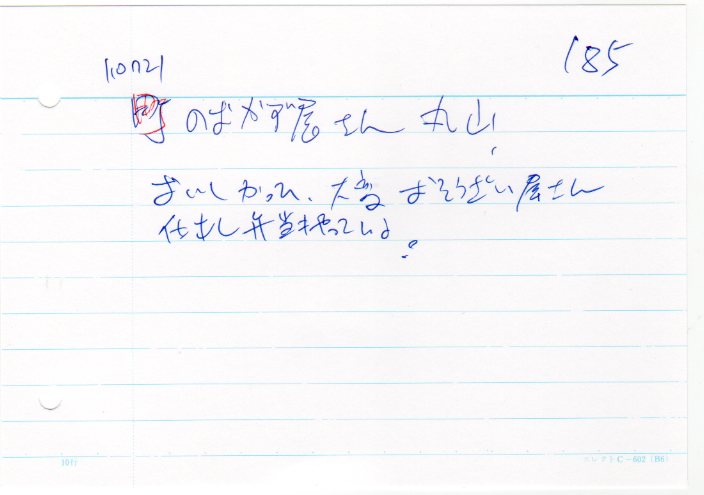 110721
185
町のおかず屋さん 丸山
おいしかった、大変 おそうざい屋さん
仕出し弁当もやっているよ。
10行
コレクト C-602 (B6)